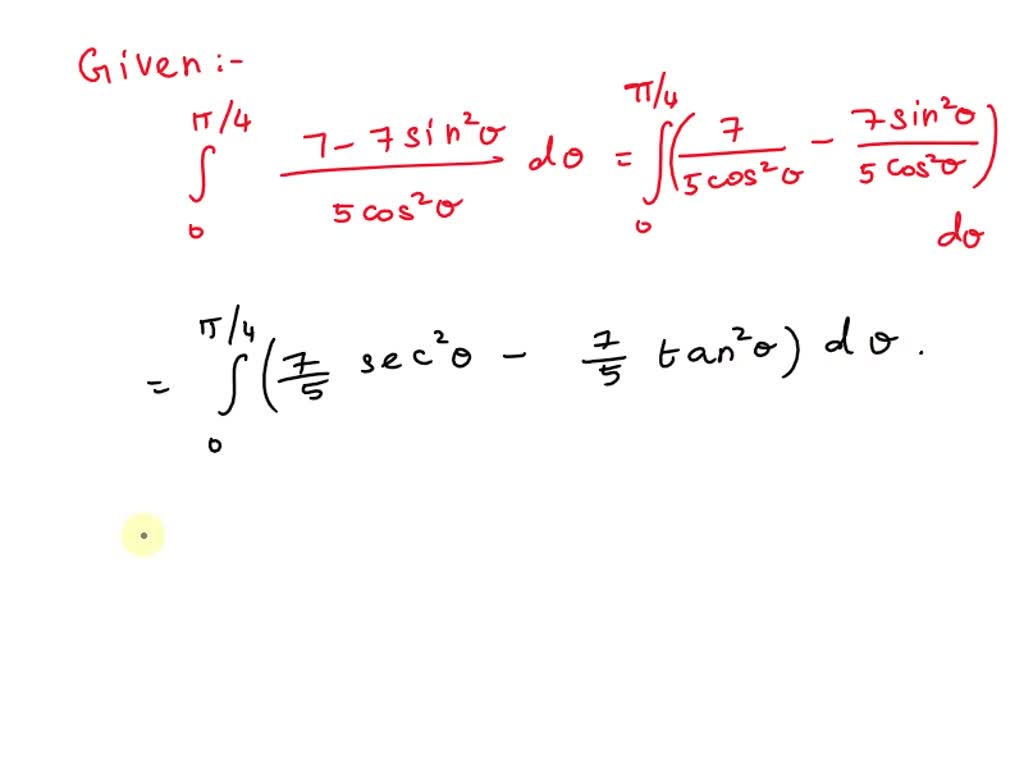 Given :-
∫₀^(π/4) (7 - 7 sin²θ)/(5 cos²θ) dθ = ∫₀^(π/4) (7/(5 cos²θ) - (7 sin²θ)/(5 cos²θ)) dθ
= ∫₀^(π/4) (7/5 sec²θ - 7/5 tan²θ) dθ.